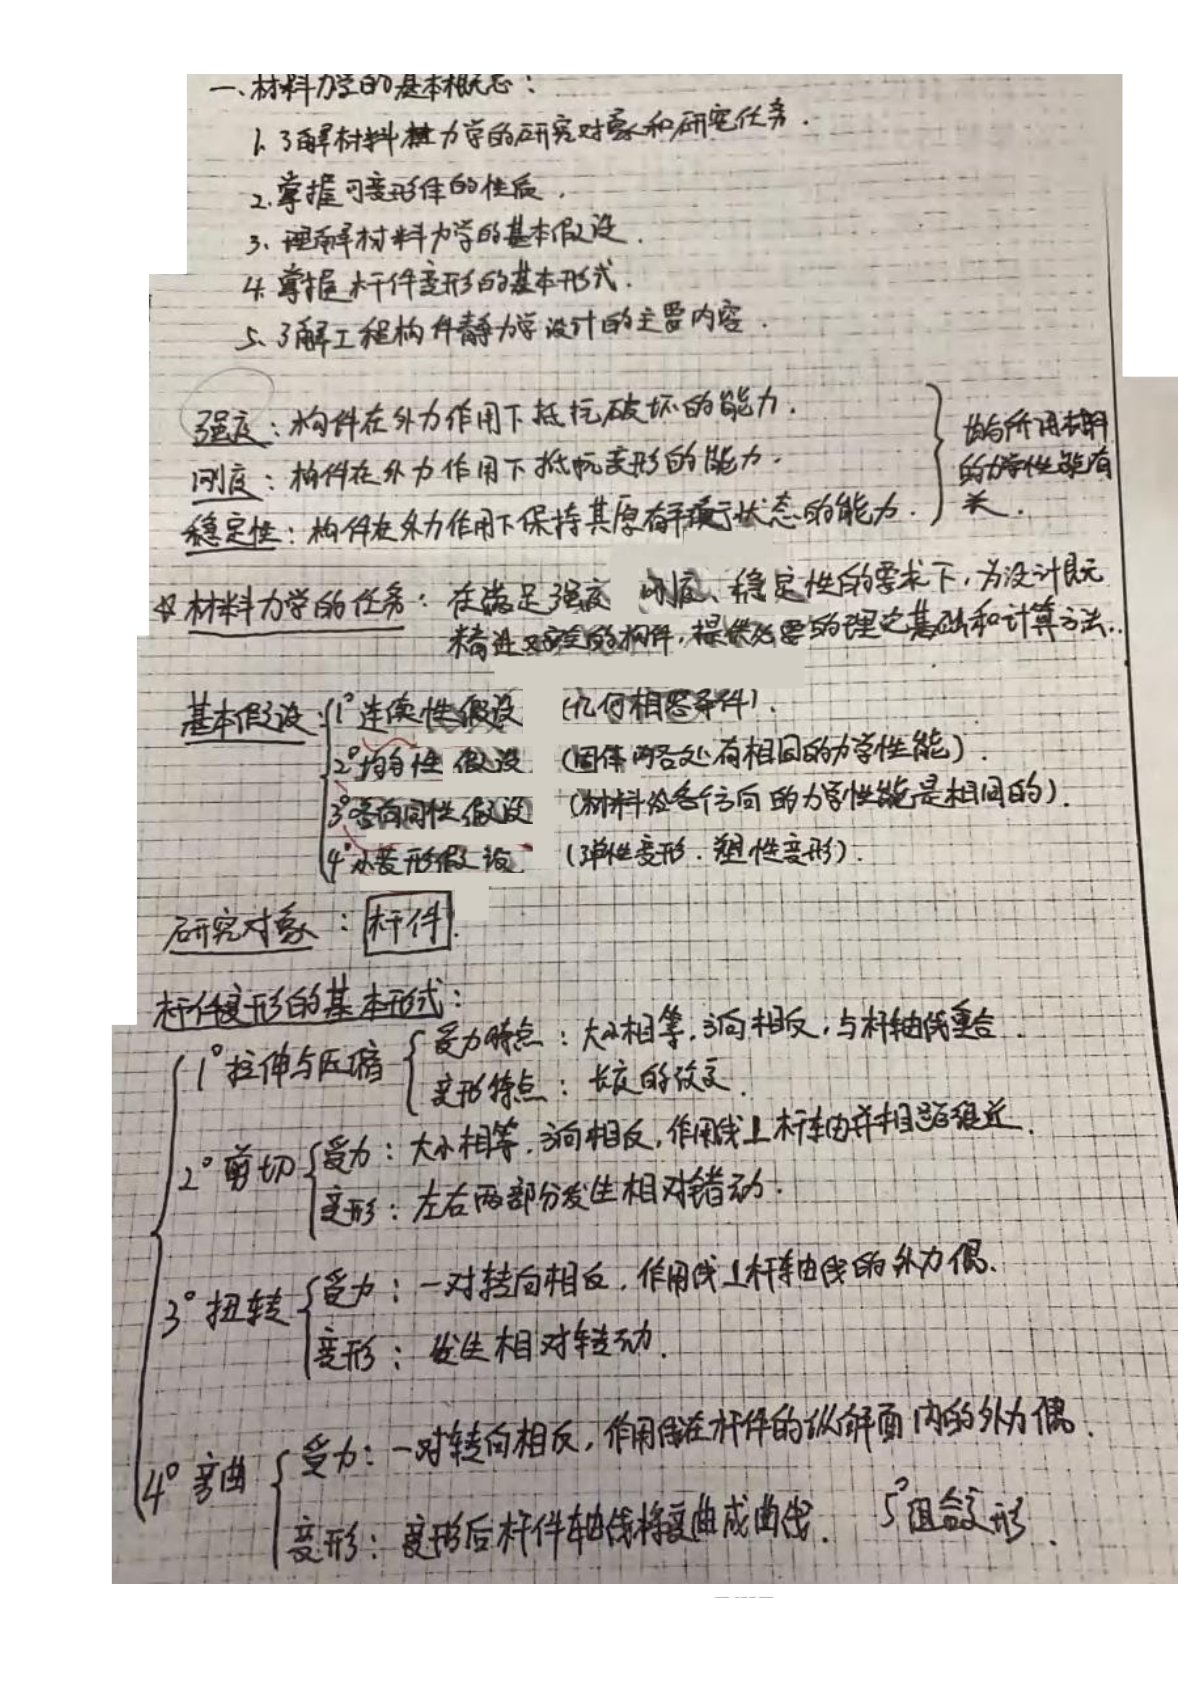 一、材料力学的基本概念：
1. 了解材料力学的研究对象和研究任务.
2. 掌握可变形体的性质.
3. 理解材料力学的基本假设.
4. 掌握杆件变形的基本形式.
5. 了解工程构件静力学设计的主要内容.
强度：构件在外力作用下抵抗破坏的能力.
刚度：构件在外力作用下抵抗变形的能力.
稳定性：构件在外力作用下保持其原有平衡状态的能力.
均与所用材料
的力学性能有
关.
☆材料力学的任务：在满足强度 刚度、稳定性的要求下，为设计既
精进又安全的构件，提供必要的理论基础和计算方法..
基本假设：1°连续性假设 (几何相容条件).
2°均匀性假设 (固体内各处有相同的力学性能).
3°各向同性假设 (材料沿各个方向的力学性能是相同的).
4°小变形假设 (弹性变形.塑性变形).
研究对象：杆件.
杆件变形的基本形式：
1°拉伸与压缩 受力特点：大小相等.方向相反，与杆轴线重合.
变形特点：长度的改变.
2°剪切 受力：大小相等.方向相反，作用线⊥杆轴并相距很近.
变形：左右两部分发生相对错动.
3°扭转 受力：一对转向相反，作用线⊥杆轴线的外力偶.
变形：发生相对转动.
4°弯曲 受力：一对转向相反，作用在杆件的纵向面内的外力偶.
变形：变形后杆件轴线将弯曲成曲线. 5°组合变形.